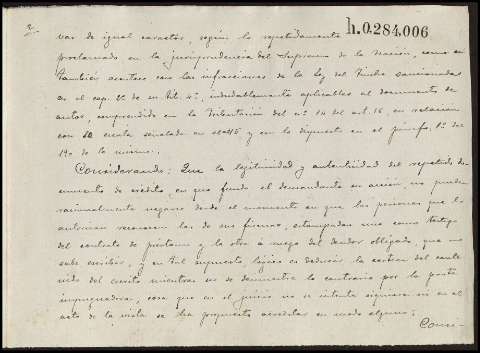 2.
h.0.284,006
var de igual caracter, según lo repetidamente
proclamado en la jurisprudencia del Supremo de la Nación, como en
también acontece con las infracciones de la ley del Timbre sancionadas
en el cap. 2º de su tit. 4º, indudablemente aplicables al documento de
autos, comprendido en la tributación del nº 14 del art. 16, en relación
con la escala señalada en el 15 y en lo dispuesto en el párrafo 1º del
190 de la misma.
Considerando: Que la legitimidad y autenticidad del repetido do-
cumento de crédito, en que funda el demandante su acción no pueden
racionalmente negarse desde el momento en que las personas que lo
autorizan reconocen las de sus firmas, estampadas una como testigo
del contrato de préstamo y la otra á ruego del deudor obligado, que no
sabe escribir, y en tal supuesto lógico es deducir la certeza del conte
nido del escrito mientras no se demuestre lo contrario por la parte
impugnadora, cosa que en el juicio no se intentó siquiera ni en el
acto de la vista se ha propuesto acreditar en modo alguno:
Consi-